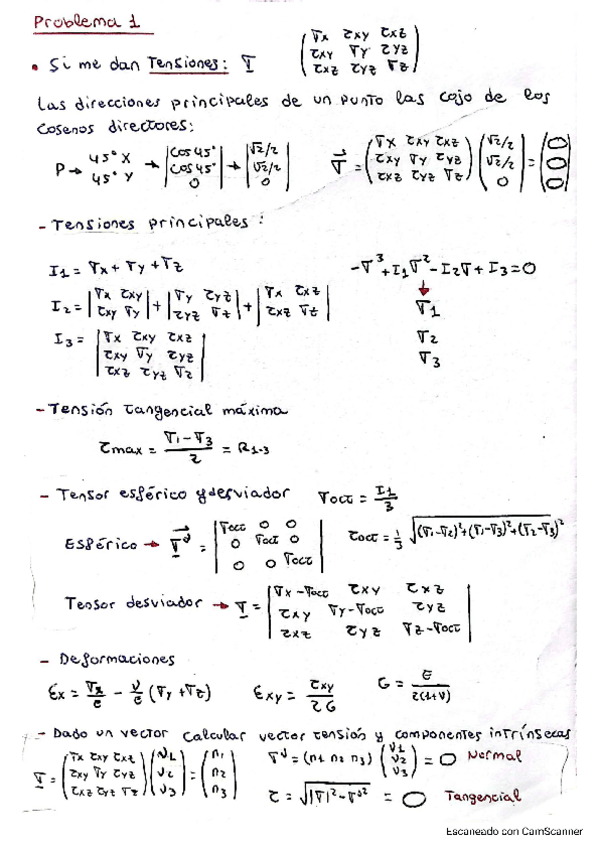 Problema 1
• Si me dan Tensiones: σ (σx τxy τxz
τxy σy τyz
τxz τyz σz)
Las direcciones principales de un punto las cojo de los
cosenos directores:
P → 45° X
45° Y → |cos 45°
cos 45°
0| → |√2/2
√2/2
0| σ⃗ = (σx τxy τxz
τxy σy τyz
τxz τyz σz) (√2/2
√2/2
0) = (0
0
0)
- Tensiones principales:
I1 = σx + σy + σz
-σ³ + I1σ² - I2σ + I3 = 0
I2 = |σx τxy
τxy σy| + |σy τyz
τyz σz| + |σx τxz
τxz σz|
↓
σ1
σ2
σ3
I3 = |σx τxy τxz
τxy σy τyz
τxz τyz σz|
- Tensión tangencial máxima
τmax = (σ1 - σ3)/2 = R1-3
- Tensor esférico y desviador σoct = I1/3
Esférico → σ⃗ᵛ = |σoct 0 0
0 σoct 0
0 0 σoct| τoct = 1/3 √((σ1-σ2)²+(σ1-σ3)²+(σ2-σ3)²
Tensor desviador → σ = |σx-σoct τxy τxz
τxy σy-σoct τyz
τxz τyz σz-σoct|
- Deformaciones
εx = σx/e - ν/e (σy + σz) εxy = τxy/2G G = E/2(1+ν)
- Dado un vector calcular vector tensión y componentes intrínsecas
σ = (σx τxy τxz
τxy σy τyz
τxz τyz σz) (ν1
ν2
ν3) = (n1
n2
n3)
σᵛ = (n1 n2 n3) (ν1
ν2
ν3) = 0 Normal
τ = √(|σ|² - σᵛ²) = 0 Tangencial
Escaneado con CamScanner